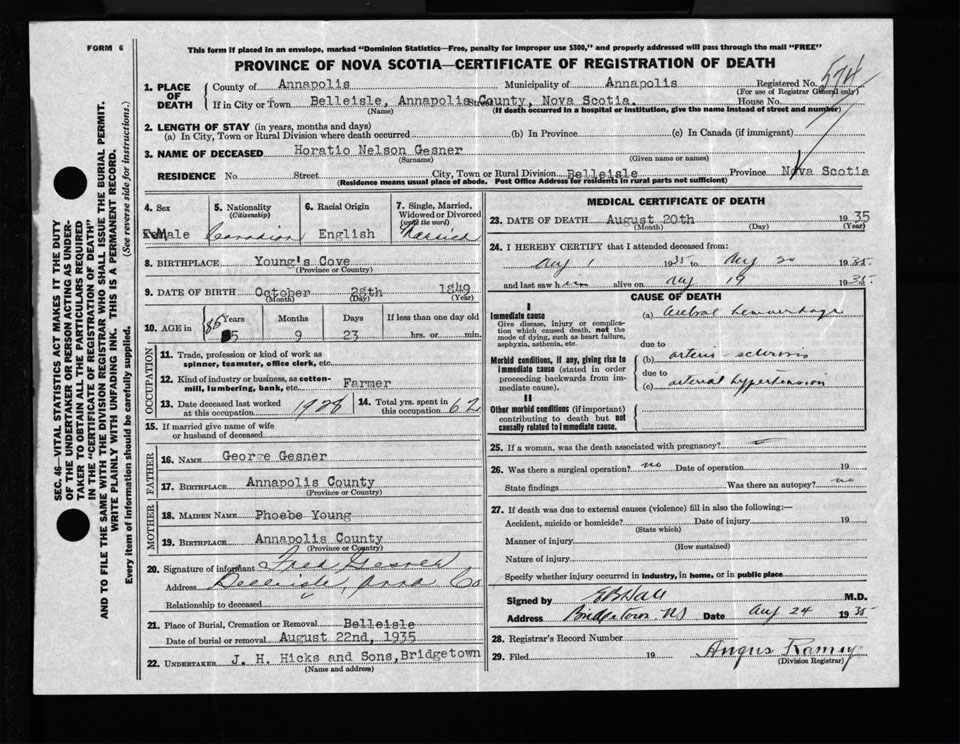 FORM 6
This form if placed in an envelope, marked "Dominion Statistics—Free, penalty for improper use $300," and properly addressed will pass through the mail "FREE"
PROVINCE OF NOVA SCOTIA—CERTIFICATE OF REGISTRATION OF DEATH
1. PLACE OF DEATH
County of Annapolis Municipality of Annapolis Registered No. 574
(For use of Registrar General only)
If in City or Town Belleisle, Annapolis County, Nova Scotia. House No.
(Name) (If death occurred in a hospital or institution, give the name instead of street and number)
2. LENGTH OF STAY (in years, months and days)
(a) In City, Town or Rural Division where death occurred (b) In Province (c) In Canada (if immigrant)
3. NAME OF DECEASED Horatio Nelson Gesner
(Surname) (Given name or names)
RESIDENCE No. Street City, Town or Rural Division Belleisle Province Nova Scotia
(Residence means usual place of abode. Post Office Address for residents in rural parts not sufficient)
SEC. 46—VITAL STATISTICS ACT MAKES IT THE DUTY
OF THE UNDERTAKER OR PERSON ACTING AS UNDER-
TAKER TO OBTAIN ALL THE PARTICULARS REQUIRED
IN THE "CERTIFICATE OF REGISTRATION OF DEATH"
AND TO FILE THE SAME WITH THE DIVISION REGISTRAR WHO SHALL ISSUE THE BURIAL PERMIT.
WRITE PLAINLY WITH UNFADING INK. THIS IS A PERMANENT RECORD.
Every item of information should be carefully supplied. (See reverse side for instructions.)
4. Sex Male
5. Nationality (Citizenship) Canadian
6. Racial Origin English
7. Single, Married, Widowed or Divorced (write the word) Married
8. BIRTHPLACE Young's Cove
(Province or Country)
9. DATE OF BIRTH October 28th 1849
(Month) (Day) (Year)
10. AGE in Years Months Days If less than one day old
85 9 23 hrs. or min.
OCCUPATION
11. Trade, profession or kind of work as
spinner, teamster, office clerk, etc.
12. Kind of industry or business, as cotton-
mill, lumbering, bank, etc. Farmer
13. Date deceased last worked at this occupation 1928
14. Total yrs. spent in this occupation 62
15. If married give name of wife
or husband of deceased
FATHER
16. NAME George Gesner
17. BIRTHPLACE Annapolis County
(Province or Country)
MOTHER
18. MAIDEN NAME Phoebe Young
19. BIRTHPLACE Annapolis County
(Province or Country)
20. Signature of informant Fred Gesner
Address Belleisle, Anna Co
Relationship to deceased
21. Place of Burial, Cremation or Removal Belleisle
Date of burial or removal August 22nd, 1935
22. UNDERTAKER J. H. Hicks and Sons, Bridgetown
(Name and address)
MEDICAL CERTIFICATE OF DEATH
23. DATE OF DEATH August 20th 1935
(Month) (Day) (Year)
24. I HEREBY CERTIFY that I attended deceased from:
Aug 1 1935 to Aug 20 1935
and last saw him alive on Aug 19 1935
CAUSE OF DEATH
I
Immediate cause
Give disease, injury or complica-
tion which caused death, not the
mode of dying, such as heart failure,
asphyxia, asthenia, etc.
(a) Cerebral hemorrhage
due to
Morbid conditions, if any, giving rise to
immediate cause (stated in order
proceeding backwards from im-
mediate cause).
(b) arterio sclerosis
due to
(c) arterial hypertension
II
Other morbid conditions (if important)
contributing to death but not
causally related to immediate cause.
25. If a woman, was the death associated with pregnancy?
26. Was there a surgical operation? no Date of operation 19
State findings Was there an autopsy? no
27. If death was due to external causes (violence) fill in also the following:—
Accident, suicide or homicide? Date of injury 19
(State which)
Manner of injury
(How sustained)
Nature of injury
Specify whether injury occurred in industry, in home, or in public place
Signed by E B Hall M.D.
Address Bridgetown NS Date Aug 24 1935
28. Registrar's Record Number
29. Filed 19 Angus Ramey
(Division Registrar)